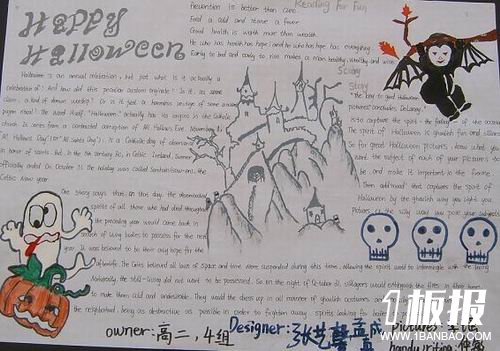 Happy
Halloween
Reading for Fun
Prevention is better than cure.
Feed a cold and starve a fever
Good health is worth more than wealth
He who has health has hope; and he who has hope has everything.
Early to bed and early to rise makes a man healthy, wealthy and wise
Scary
Story
Halloween is an annual celebration, but just what is it actually a
celebration of? And how did this peculiar custom originate? Is it, as some
claim, a kind of demon worship? Or is it just a harmless vestige of some ancient
pagan ritual? The word itself, "Halloween," actually has its origins in the Catholic
Church. It comes from a contracted corruption of All Hallows Eve. November 1,
"All Hallows Day" (or "All Saints Day"), is a Catholic day of observance
in honor of saints. But, in the 5th century BC, in Celtic Ireland, summer
officially ended on October 31. The holiday was called
Celtic New year
"The key to good Halloween
pictures" concludes DeLaney,
"is to capture the spirit - the feeling of the occasion.
The spirit of Halloween is ghoulish fun and
So for great Halloween pictures, know what you
want the subject of each of your pictures to
be, and make it important in the frame.
Then add mood that captures the spirit of
Halloween by the ghoulish way you light your
One story says that, on that day, the disembodied
spirits of all those who had died throughout
the preceding year would come back in
search of living bodies to possess for the next
year. It was believed to be their only hope for the
afterlife. The Celts believed all laws of space and time were suspended during this time, allowing the spirit world to intermingle with the living
Naturally, the still-living did not want to be possessed. So on the night of October 31, villagers would extinguish the fires in their homes,
to make them cold and undesirable. They would then dress up in all manner of ghoulish costumes and
the neighborhood, being as destructive as possible in order to frighten away spirits looking for bodies
owner: 高二,4组
Designer:
Pictures:
handwriting:
1板报
WWW.1BANBAO.COM